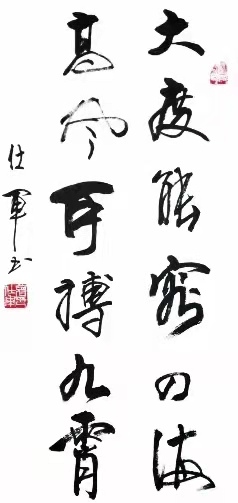 大度能窮四海
高风可搏九霄
仕軍书